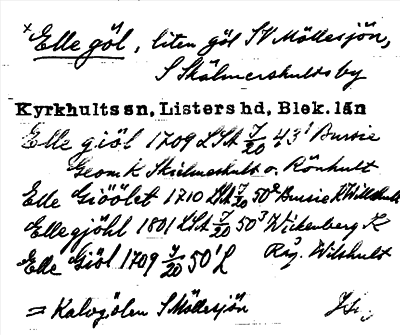 × Elle göl, liten göl SV Möllesjön,
S Skälmershults by
Kyrkhults sn, Listers hd, Blek. län
Elle giöl 1709 LSA 7/20 43¹ Bursie
Geom. K Skielmershult o. Rönhult
Elle Giöölet 1710 LSA 7/20 50² Bursie K Willshult
Ellegjöhl 1801 LSA 7/20 50³ Wickenberg K
Elle Giöl 1709 7/20 50¹ L Råg. Wilshult
= Kalvgölen S Möllesjön